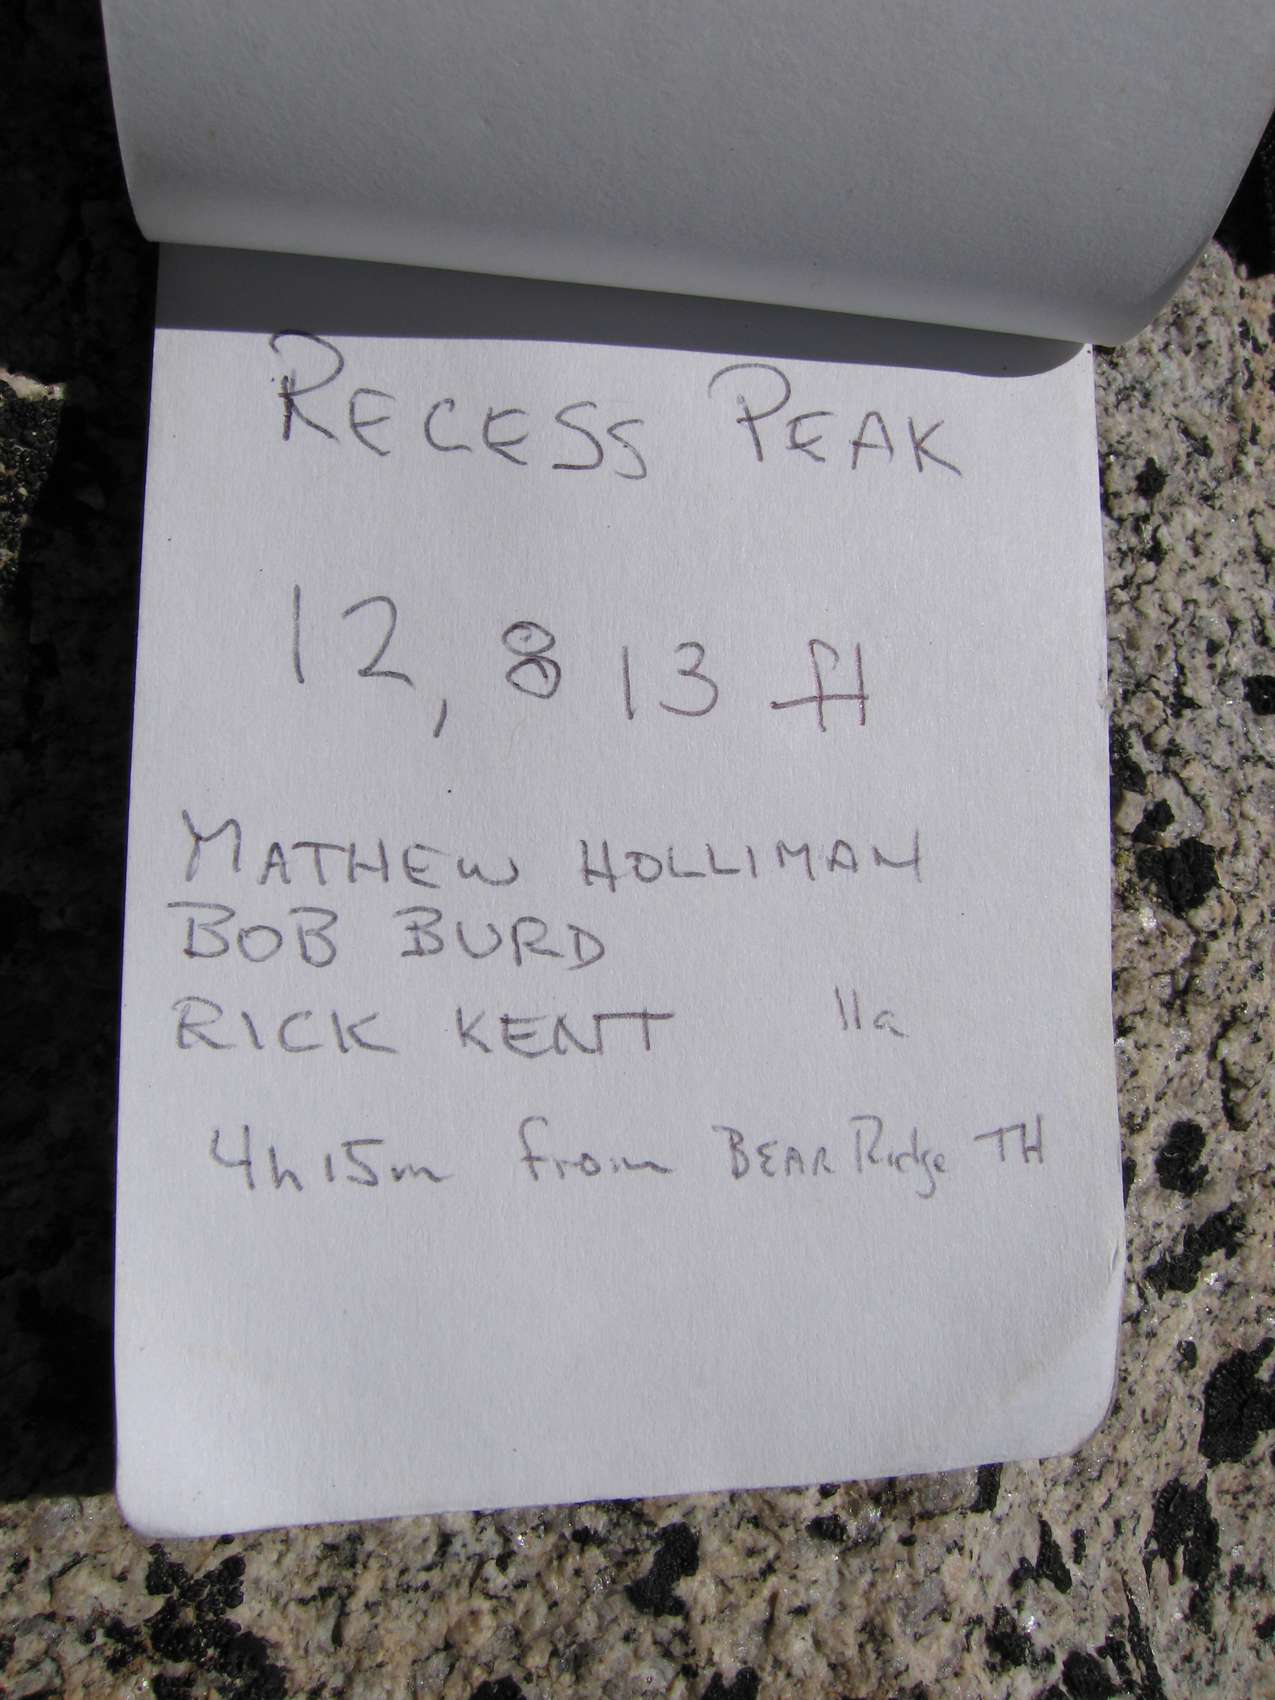 RECESS PEAK
12,813 ft
MATHEW HOLLIMAN
BOB BURD
RICK KENT 11a
4h15m from BEAR Ridge TH